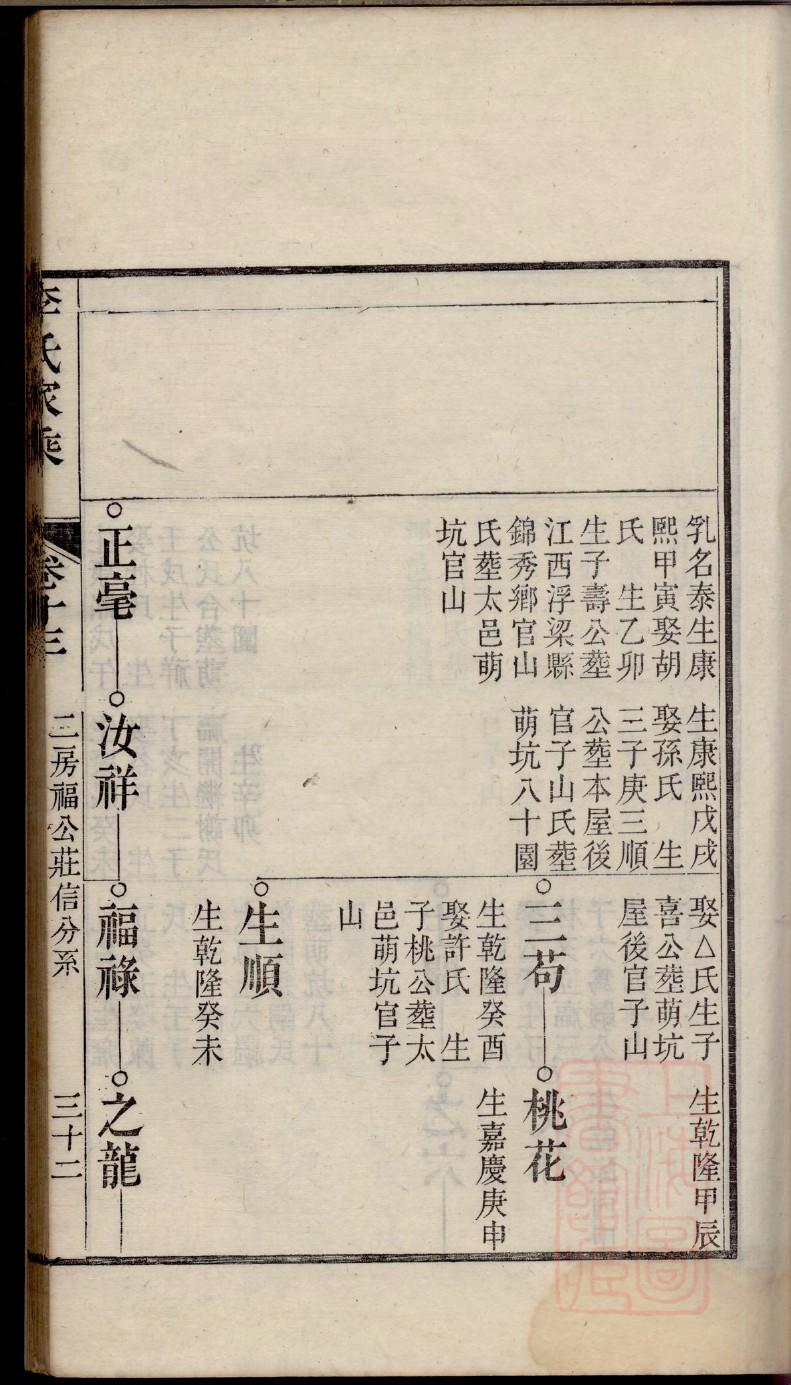 乳名泰生康
熙甲寅娶胡
氏　生乙卯
生子壽公塟
江西浮梁縣
錦秀鄉官山
氏塟太邑萌
坑官山
生康熙戊戌
娶孫氏　生
三子庚三順
公塟本屋後
官子山氏塟
萌坑八十園
娶△氏生子
喜公塟萌坑
屋後官子山
生乾隆甲辰
三苟
生乾隆癸酉
娶許氏　生
子桃公塟太
邑萌坑官子
山
桃花
生嘉慶庚申
生順
生乾隆癸未
正毫
汝祥
福祿
之龍
李氏家乘
卷十三
二房福公莊信分系
三十二